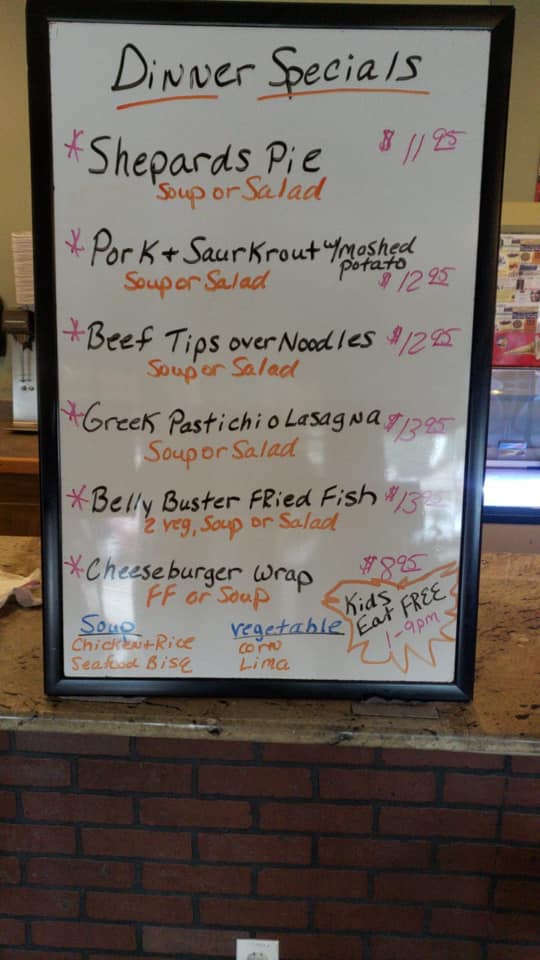 Dinner Specials
* Shepards Pie $11.95
Soup or Salad
* Pork + Saurkrout w/moshed
potato
Soup or Salad $12.95
* Beef Tips over Noodles $12.95
Soup or Salad
* Greek Pastichio Lasagna $13.95
Soup or Salad
* Belly Buster Fried Fish $13.95
2 veg, Soup or Salad
* Cheeseburger Wrap $8.95
FF or Soup
Kids
Eat FREE
1-9pm
Soup
Chicken + Rice
Seafood Bisq
vegetable
corn
Lima